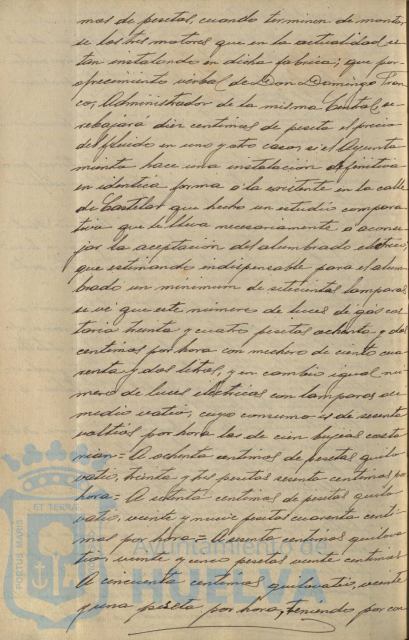 mos de pesetas, cuando terminen de montar
se los tres motores que en la actualidad es
tan instalando en dicha fabrica; que por
ofrecimiento verbal de Don Domingo Fran
co, Administrador de la misma Central, se
rebajará diez centimos de peseta el precio
del fluido en uno y otro caso, si el Ayunta
miento hace una instalacion definitiva
en identica forma á la existente en la calle
de Castelar que hecho un estudio compara
tivo que le lleva necesariamente á aconse
jar la aceptacion del alumbrado electrico,
que estimando indispensable para el alum
brado un minimum de setecientas lamparas
se vé que este número de luces de gas cos
taria treinta y cuatro pesetas ochenta y dos
centimos por hora con mechero de ciento cua
renta y dos litros, y en cambio igual nú
mero de luces eléctricas con lamparas de
medio vatio, cuyo consumo es de sesenta
vatios por hora las de cien bujias costa
rian = A ochenta centimos de pesetas quilo
vatio, treinta y tres pesetas sesenta centimos por
hora = A setenta centimos de pesetas quilo
vatio, veinte y nueve pesetas cuarenta centi
mos por hora = A sesenta centimos quilova
tio, veinte y cinco pesetas veinte centimos
A cincuenta centimos quilovatio, veinte
y una peseta por hora, teniendo por con
PORTUS MARIS
ET TERRAE
Ayuntamiento de
HUELVA